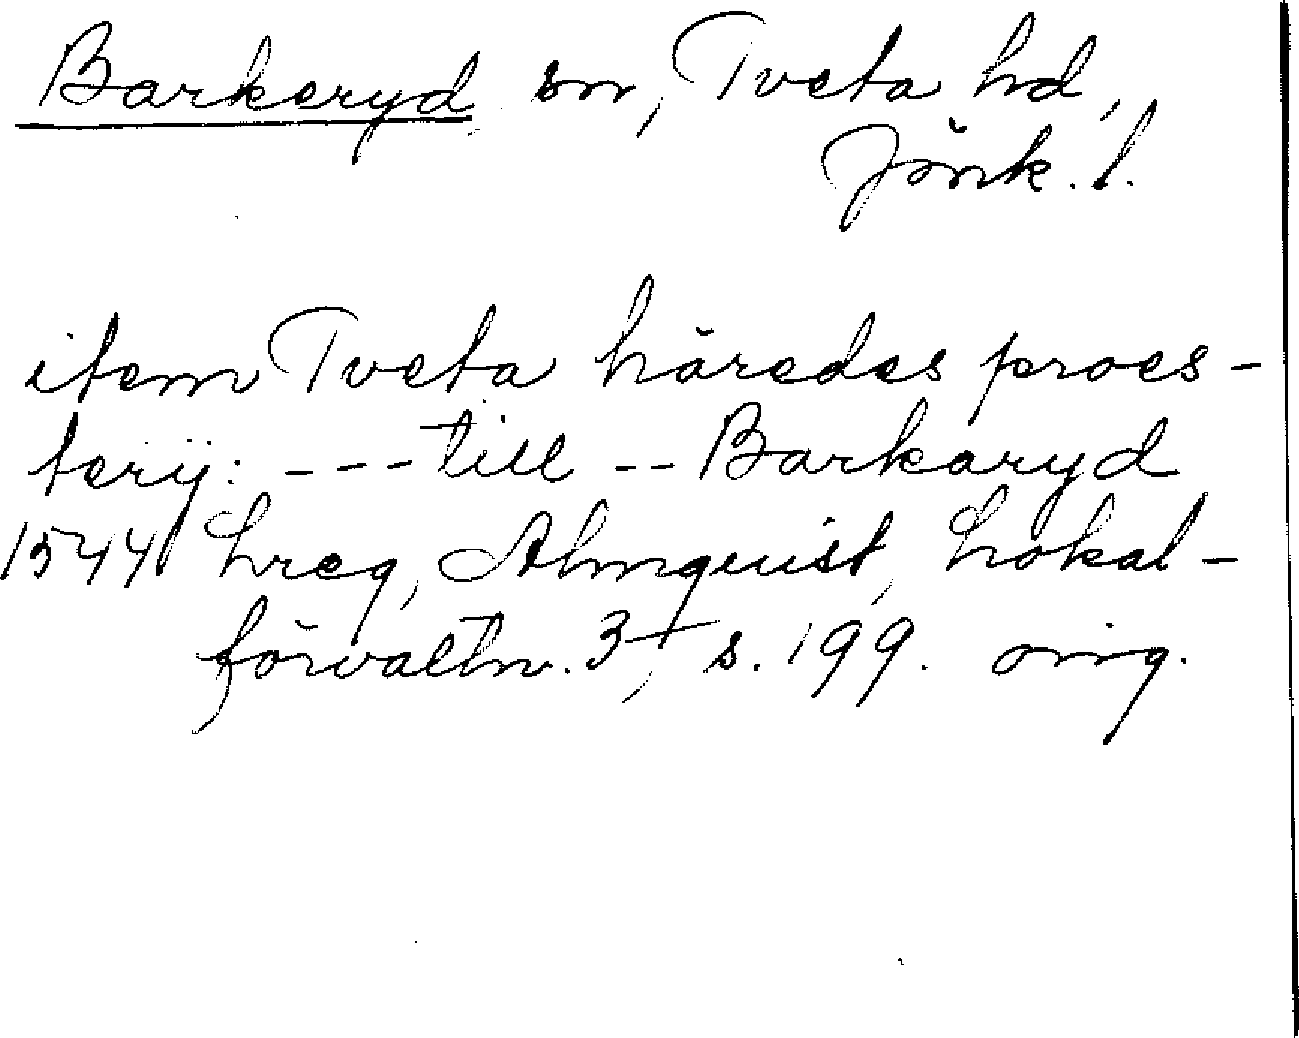 Barkeryd sn, Tveta hd,
Jönk. l.
item Tveta häredes proes-
terij: --- till -- Barkaryd
1544 Lreg, Almquist, Lokal-
förvaltn. 3+, s. 199. orig.